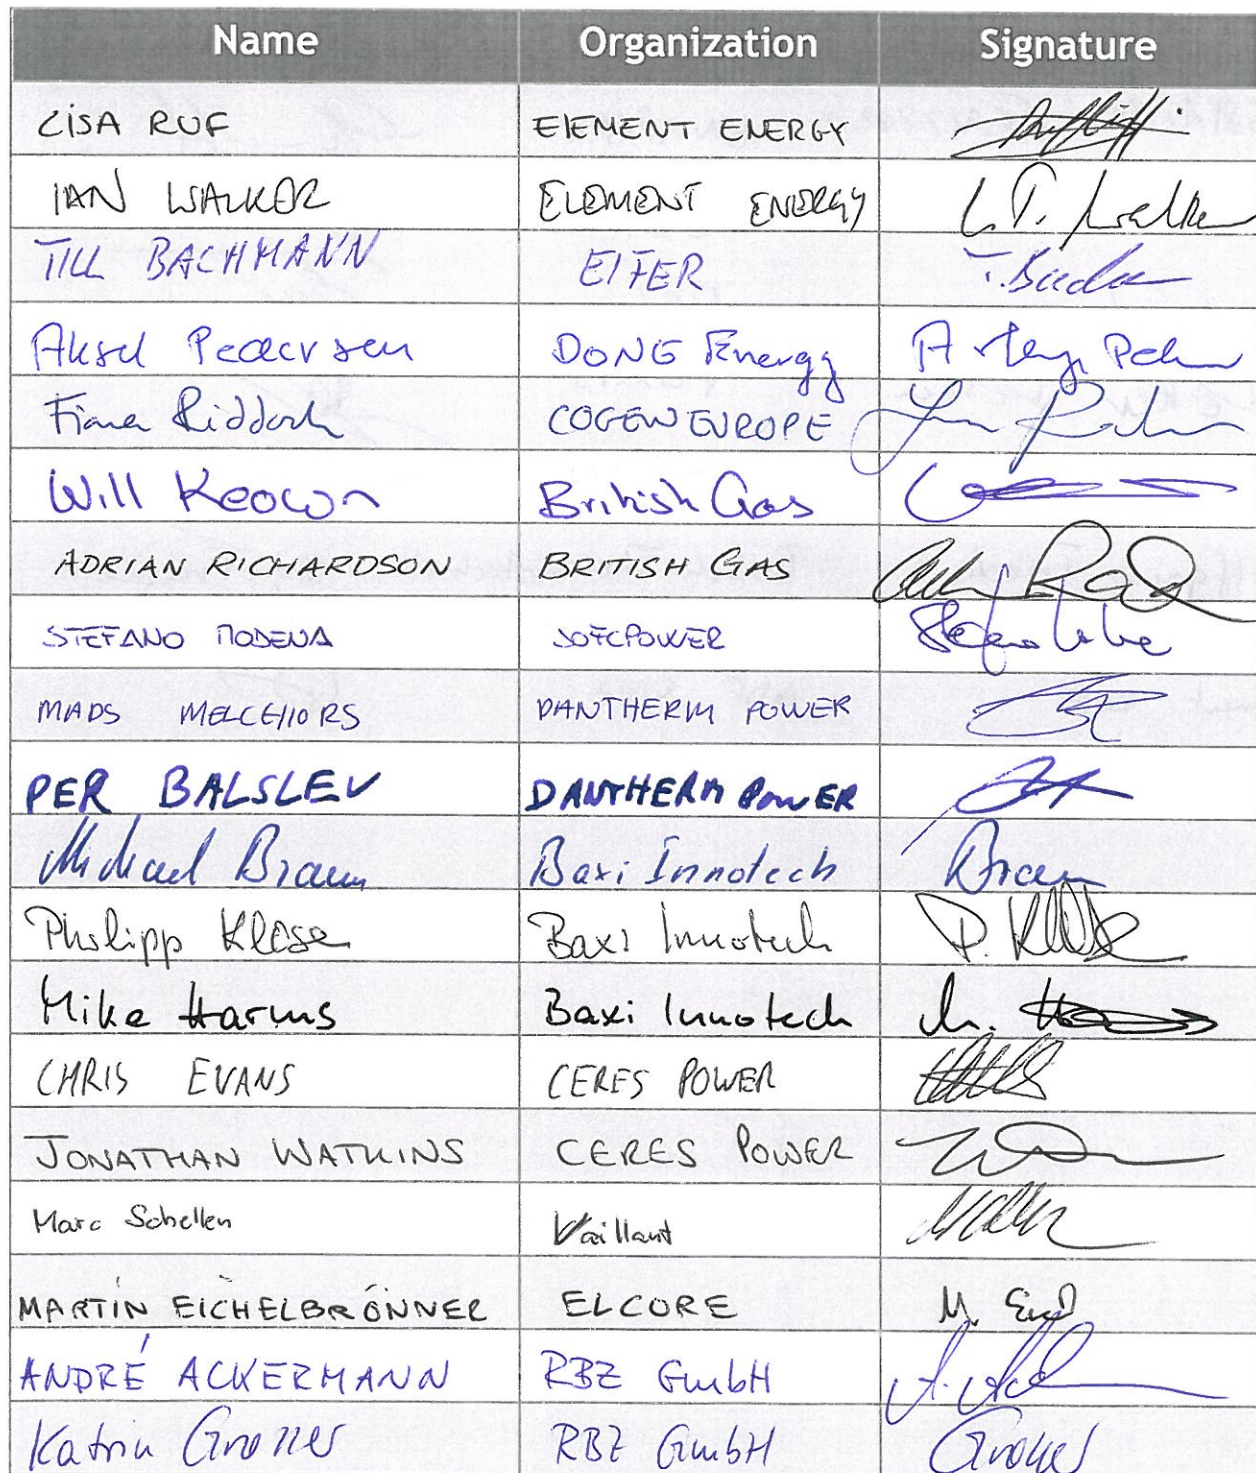 Name Organization Signature
LISA RUF ELEMENT ENERGY
IAN WALKER ELEMENT ENERGY I.T. Walker
TILL BACHMANN EIFER T. Bach
Aksel Pedersen DONG Energy
Fiona Riddoch COGEN EUROPE
Will Keown British Gas
ADRIAN RICHARDSON BRITISH GAS
STEFANO MODENA SOFCPOWER
MADS MELCHIORS DANTHERM POWER
PER BALSLEV DANTHERM POWER
Michael Braun Baxi Innotech Braun
Philipp Klose Baxi Innotech P. Klose
Mike Harms Baxi Innotech
CHRIS EVANS CERES POWER
JONATHAN WATKINS CERES POWER
Marc Schellen Vaillant
MARTIN EICHELBRÖNNER ELCORE
ANDRÉ ACKERMANN RBZ GmbH
Katrin RBZ GmbH